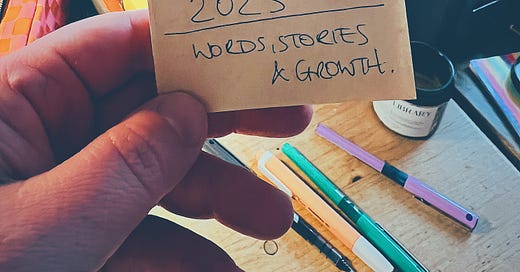 2025
WORDS, STORIES
& GROWTH.
LIBRARY